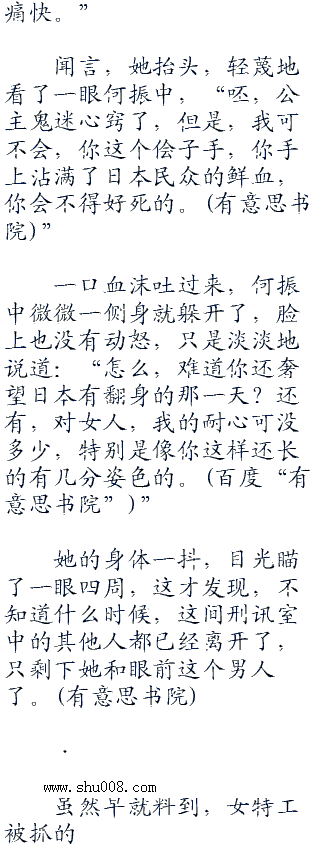 痛快。”
闻言，她抬头，轻蔑地
看了一眼何振中，“呸，公
主鬼迷心窍了，但是，我可
不会，你这个侩子手，你手
上沾满了日本民众的鲜血，
你会不得好死的。(有意思书
院)”
一口血沫吐过来，何振
中微微一侧身就躲开了，脸
上也没有动怒，只是淡淡地
说道：“怎么，难道你还奢
望日本有翻身的那一天？还
有，对女人，我的耐心可没
多少，特别是像你这样还长
的有几分姿色的。(百度“有
意思书院”)”
她的身体一抖，目光瞄
了一眼四周，这才发现，不
知道什么时候，这间刑讯室
中的其他人都已经离开了，
只剩下她和眼前这个男人
了。(有意思书院)
.
www.shu008.com
虽然早就料到，女特工
被抓的